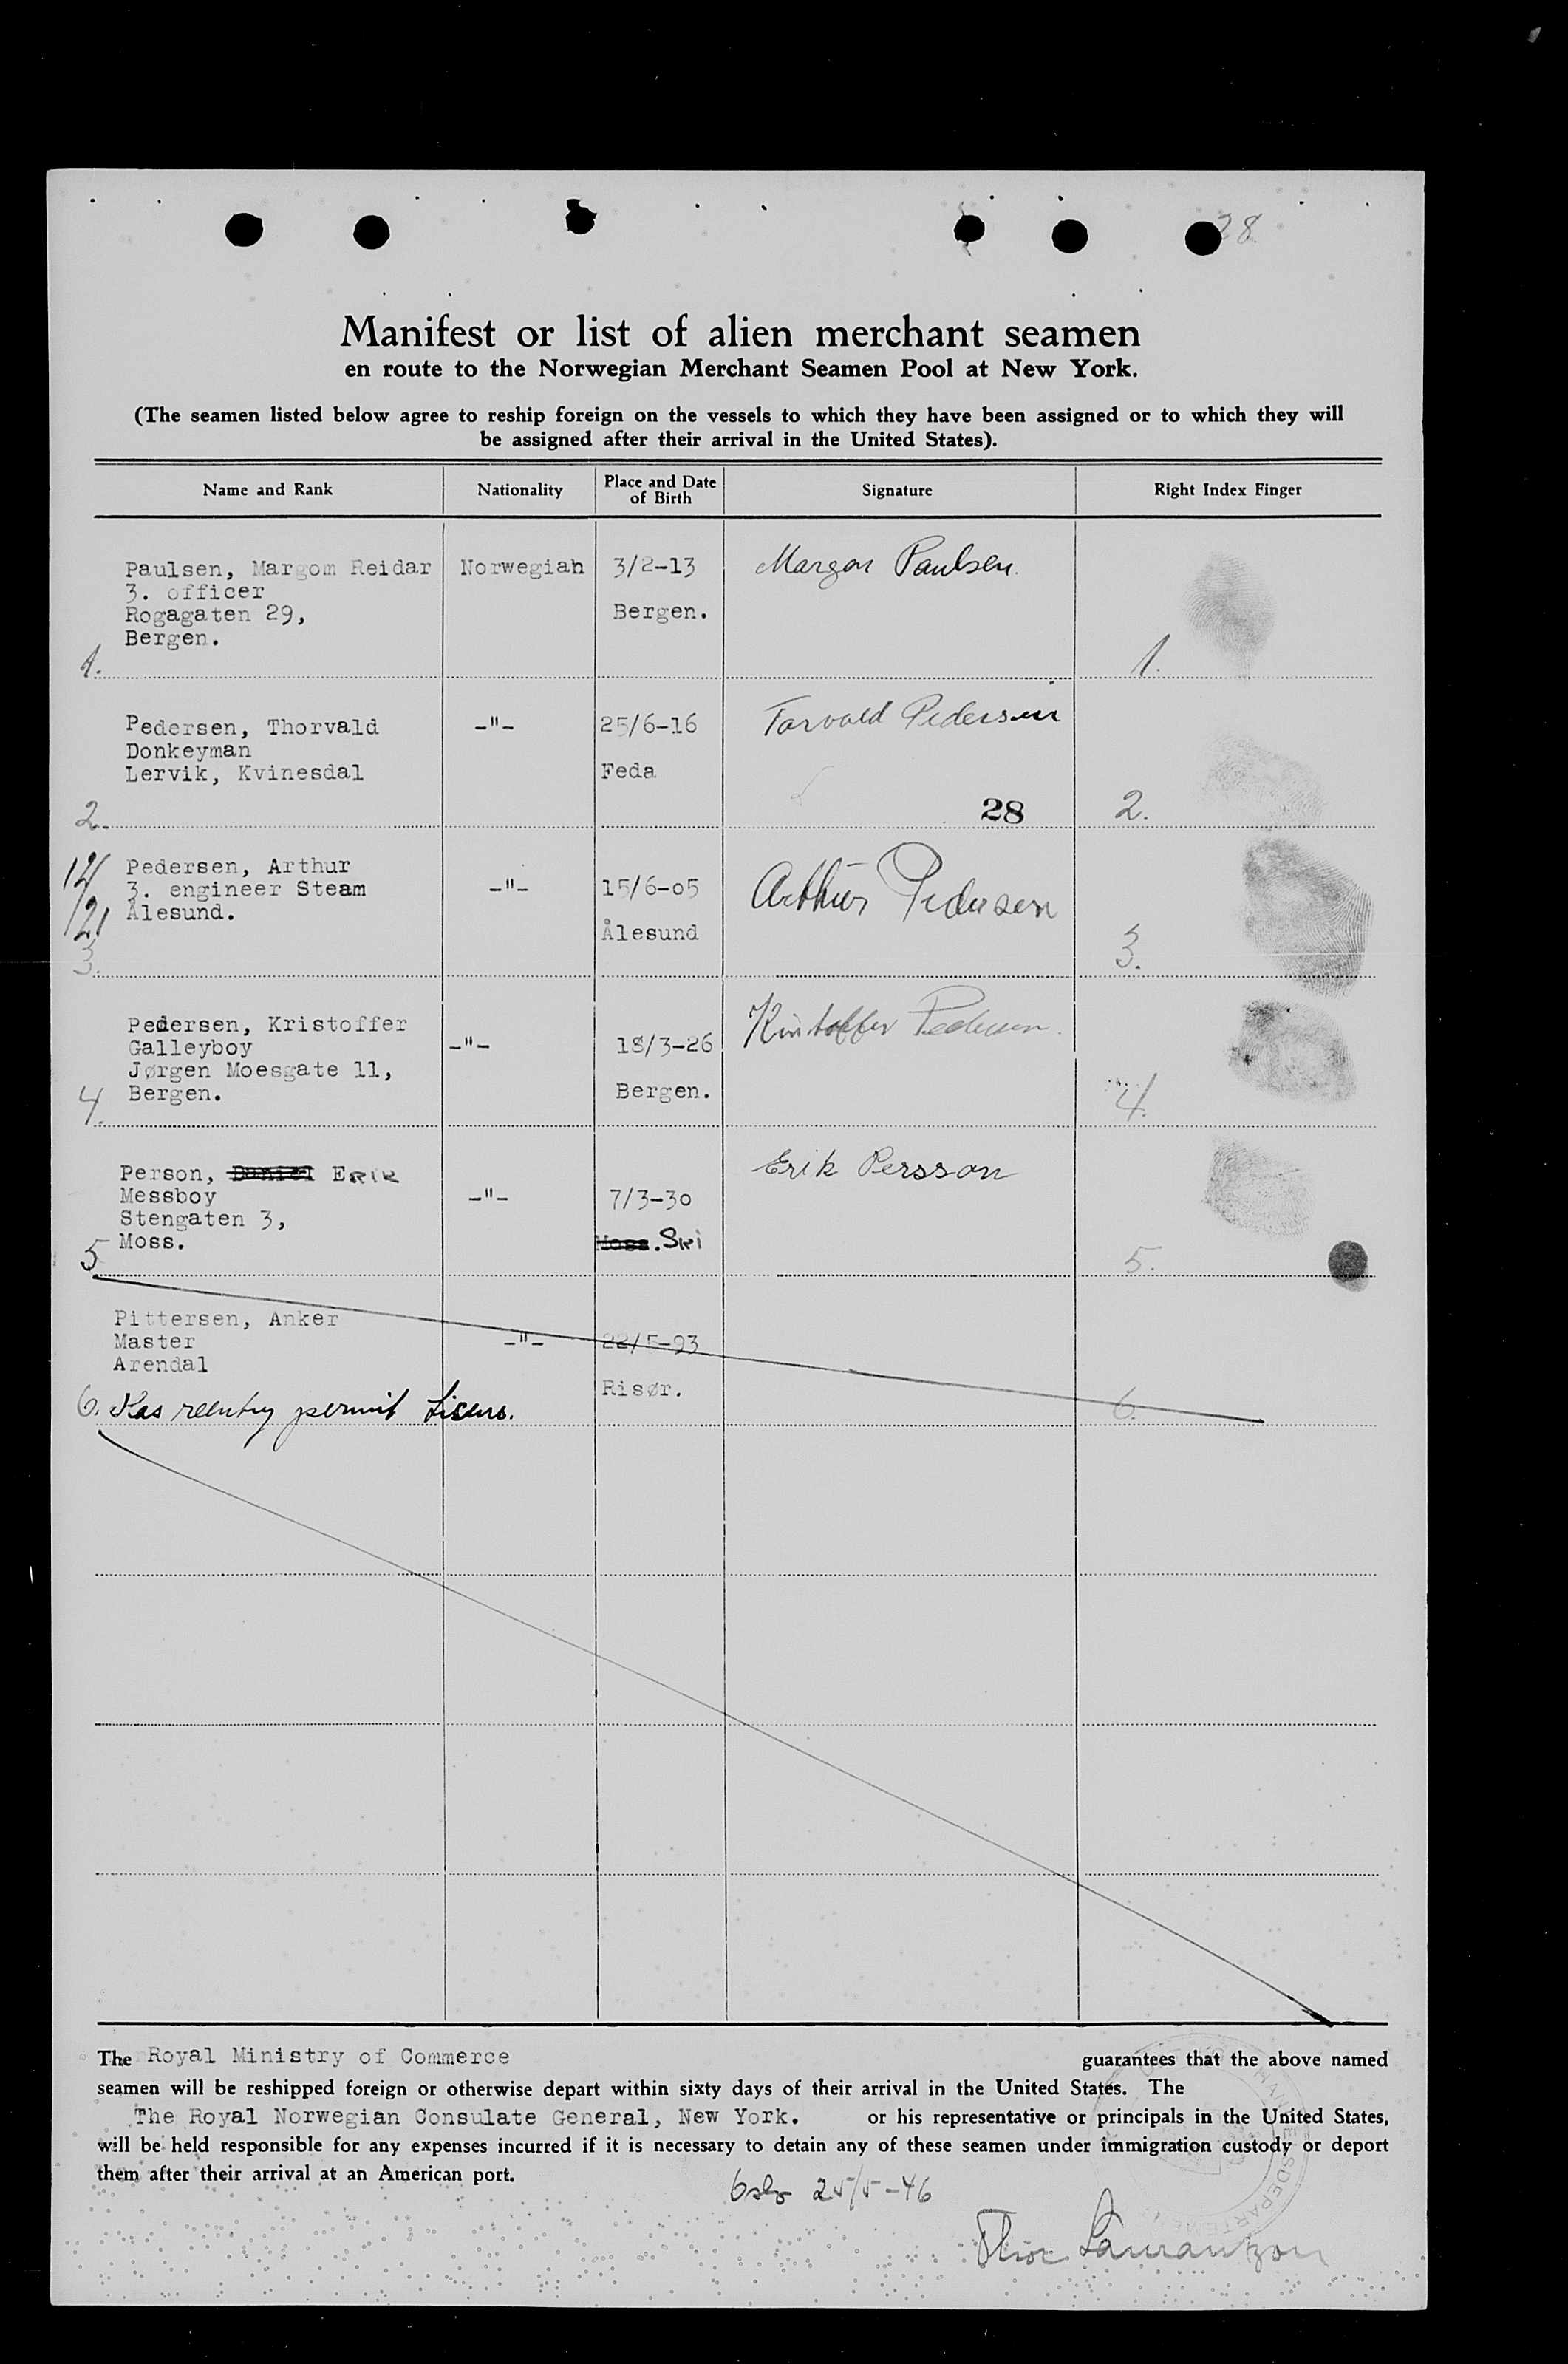 28
Manifest or list of alien merchant seamen
en route to the Norwegian Merchant Seamen Pool at New York.
(The seamen listed below agree to reship foreign on the vessels to which they have been assigned or to which they will
be assigned after their arrival in the United States).
Name and Rank Nationality Place and Date of Birth Signature Right Index Finger
Paulsen, Margom Reidar Norwegian 3/2-13 Margom Paulsen.
3. officer
Rogagaten 29, Bergen.
Bergen.
1. 1.
Pedersen, Thorvald -"- 25/6-16 Torvald Pedersen
Donkeyman
Lervik, Kvinesdal Feda
28
2. 2.
Pedersen, Arthur
3. engineer Steam -"- 15/6-05 Arthur Pedersen
Ålesund. Ålesund
3. 3.
Pedersen, Kristoffer Kristoffer Pedersen.
Galleyboy -"- 18/3-26
Jørgen Moesgate 11,
Bergen. Bergen.
4. 4.
Person, Daniel ERIK Erik Persson
Messboy -"- 7/3-30
Stengaten 3,
Moss. Moss. Ski
5 5.
Pittersen, Anker
Master -"- 22/5-93
Arendal
Risør.
6. Has reentry permit 6.
The Royal Ministry of Commerce guarantees that the above named
seamen will be reshipped foreign or otherwise depart within sixty days of their arrival in the United States. The
The Royal Norwegian Consulate General, New York. or his representative or principals in the United States,
will be held responsible for any expenses incurred if it is necessary to detain any of these seamen under immigration custody or deport
them after their arrival at an American port.
Oslo 25/5-46
Thor Laurantzon